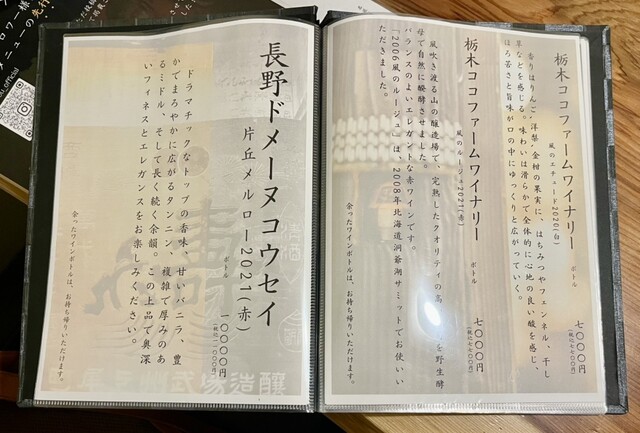 栃木ココファームワイナリー
風のエチュード2020(白)
ボトル
七〇〇〇円
(税込七七〇〇円)
香りはりんご、洋梨、金柑の果実に、はちみつやフェンネル、干し
草などを感じる。味わいは滑らかで全体的に心地の良い酸を感じ、
ほろ苦さと旨味が口の中にゆっくりと広がっていく。
栃木ココファームワイナリー
風のルージュ2021(赤)
ボトル
七〇〇〇円
(税込七七〇〇円)
風吹き渡る山の醸造場で、完熟したクオリティの高
を野生酵
母で自然に醗酵させました。
バランスのよいエレガントな赤ワインです。
「2006風のルージュ」は、2008年北海道洞爺湖サミットでお使いい
ただきました。
余ったワインボトルは、お持ち帰りいただけます。
長野ドメーヌコウセイ
片丘メルロー2021(赤)
ボトル
一〇〇〇〇円
(税込一一〇〇〇円)
ドラマチックなトップの香味、甘いバニラ、豊
かでまろやかに広がるタンニン、複雑で厚みのあ
るミドル、そして長く続く余韻。この上品で奥深
いフィネスとエレガンスをお楽しみください。
余ったワインボトルは、お持ち帰りいただけます。